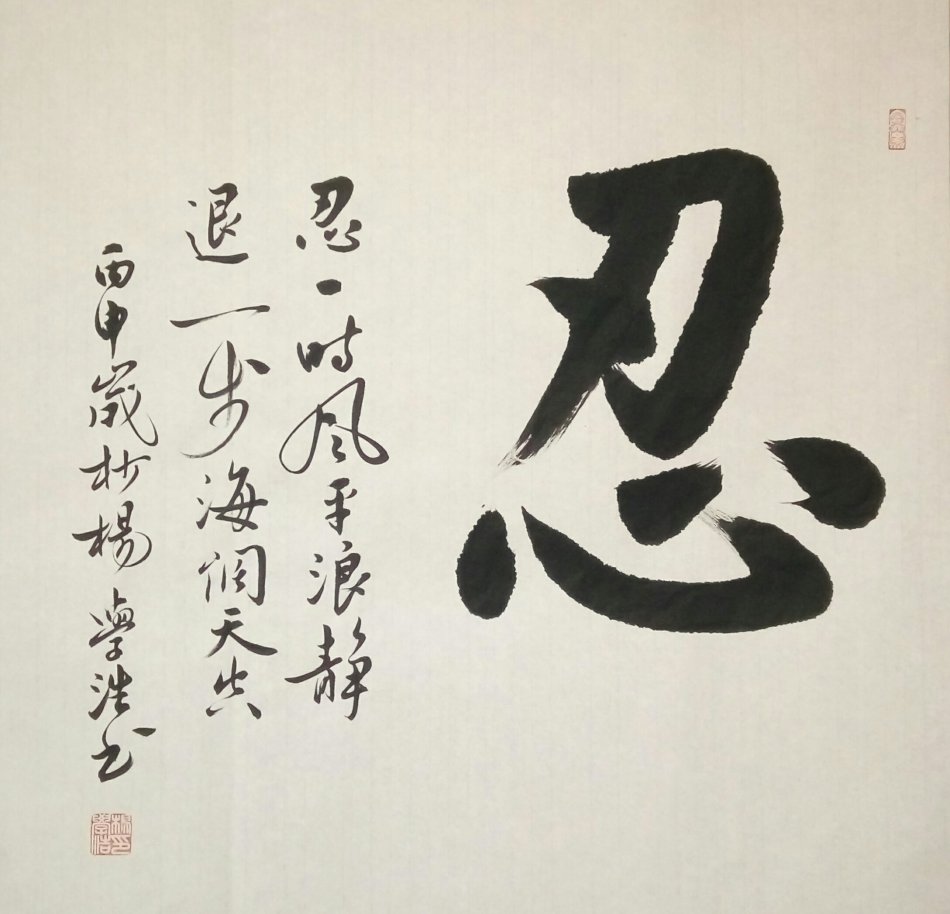 忍
忍一时风平浪静
退一步海阔天空
丙申歲杪楊學浩书